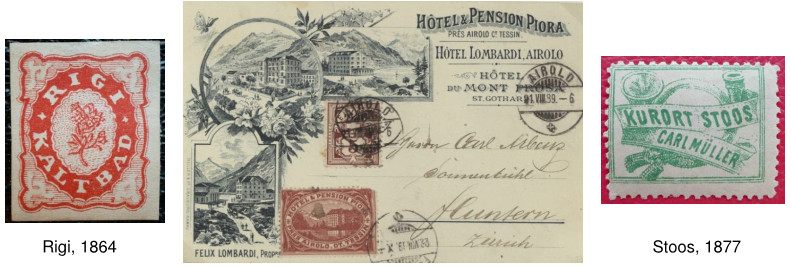 RIGI
KALTBAD
Rigi, 1864
HÔTEL & PENSION PIORA
PRÈS AIROLO Ct. TESSIN.
HÔTEL LOMBARDI, AIROLO
HÔTEL
DU MONT PROSA
ST. GOTHARD
AIROLO
21.VIII.89.–6
AIROLO
Herrn Carl
Sonnenbühl
Fluntern
Zürich
HÔTEL & PENSION PIORA
PRÈS AIROLO. CT. TESSIN.
FELIX LOMBARDI,
KURORT STOOS
CARL MÜLLER
Stoos, 1877